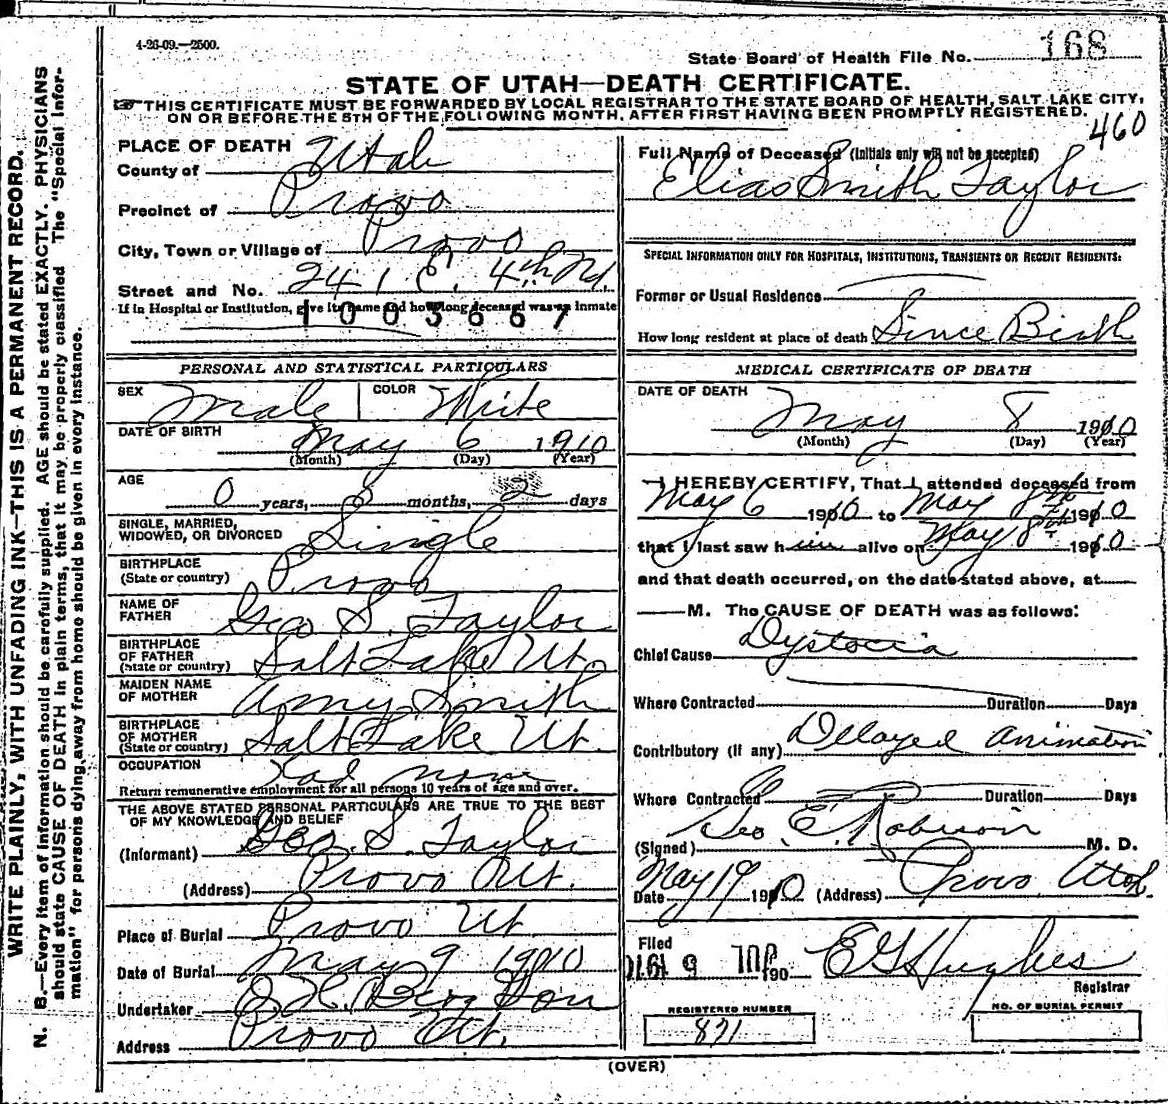 4-26-09.—2500.
State Board of Health File No. 168
STATE OF UTAH—DEATH CERTIFICATE.
☞ THIS CERTIFICATE MUST BE FORWARDED BY LOCAL REGISTRAR TO THE STATE BOARD OF HEALTH, SALT LAKE CITY,
ON OR BEFORE THE 5TH OF THE FOLLOWING MONTH, AFTER FIRST HAVING BEEN PROMPTLY REGISTERED.
460
WRITE PLAINLY, WITH UNFADING INK—THIS IS A PERMANENT RECORD.
N. B.—Every item of information should be carefully supplied. AGE should be stated EXACTLY. PHYSICIANS
should state CAUSE OF DEATH in plain terms, that it may be properly classified. The "Special Infor-
mation" for persons dying away from home should be given in every instance.
PLACE OF DEATH
County of Utah
Precinct of Provo
City, Town or Village of Provo
Street and No. 241 E. 4th N.
If in Hospital or Institution, give its name and how long deceased was an inmate
1003667
PERSONAL AND STATISTICAL PARTICULARS
SEX Male COLOR White
DATE OF BIRTH May 6 1910
(Month) (Day) (Year)
AGE 0 years, months, 2 days
SINGLE, MARRIED,
WIDOWED, OR DIVORCED Single
BIRTHPLACE
(State or country) Provo
NAME OF
FATHER Geo S. Taylor
BIRTHPLACE
OF FATHER
(State or country) Salt Lake Ut.
MAIDEN NAME
OF MOTHER Smith
BIRTHPLACE
OF MOTHER
(State or country) Salt Lake Ut.
OCCUPATION Had none
Return remunerative employment for all persons 10 years of age and over.
THE ABOVE STATED PERSONAL PARTICULARS ARE TRUE TO THE BEST
OF MY KNOWLEDGE AND BELIEF
(Informant) Geo. S. Taylor
(Address) Provo Ut.
Place of Burial Provo Ut
Date of Burial May 9 1910
Undertaker
Address Provo Ut.
Full Name of Deceased (Initials only will not be accepted)
Elias Smith Taylor
SPECIAL INFORMATION ONLY FOR HOSPITALS, INSTITUTIONS, TRANSIENTS OR RECENT RESIDENTS:
Former or Usual Residence
How long resident at place of death Since Birth
MEDICAL CERTIFICATE OF DEATH
DATE OF DEATH
May 8 1910
(Month) (Day) (Year)
I HEREBY CERTIFY, That I attended deceased from
May 6 1910 to May 8th 1910
that I last saw him alive on May 8th 1910
and that death occurred, on the date stated above, at
M. The CAUSE OF DEATH was as follows:
Chief Cause Dystocia
Where Contracted Duration Days
Contributory (if any) Delayed animation
Where Contracted Duration Days
(Signed) Geo. E. Robison M. D.
Date May 19 1910 (Address) Provo Utah
Filed 190 E G Hughes
Registrar
REGISTERED NUMBER
831
NO. OF BURIAL PERMIT
(OVER)